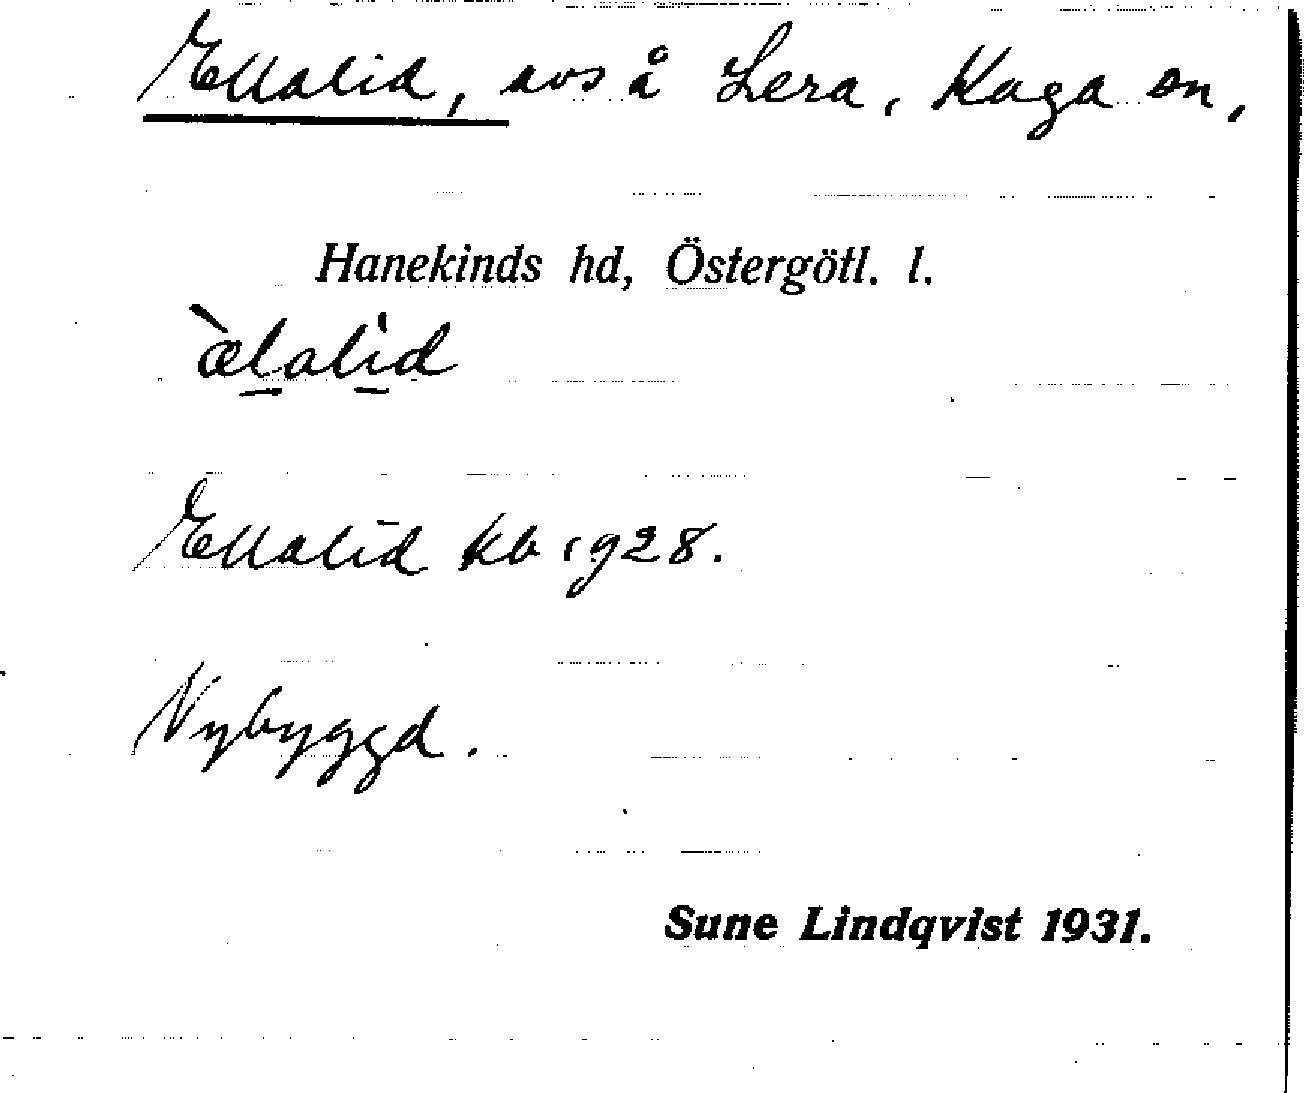 Ellalid, avs å Lera, Kaga sn,
Hanekinds hd, Östergötl. l.
æ̀lalìd
Ellalid kb 1928.
Nybyggd.
Sune Lindqvist 1931.